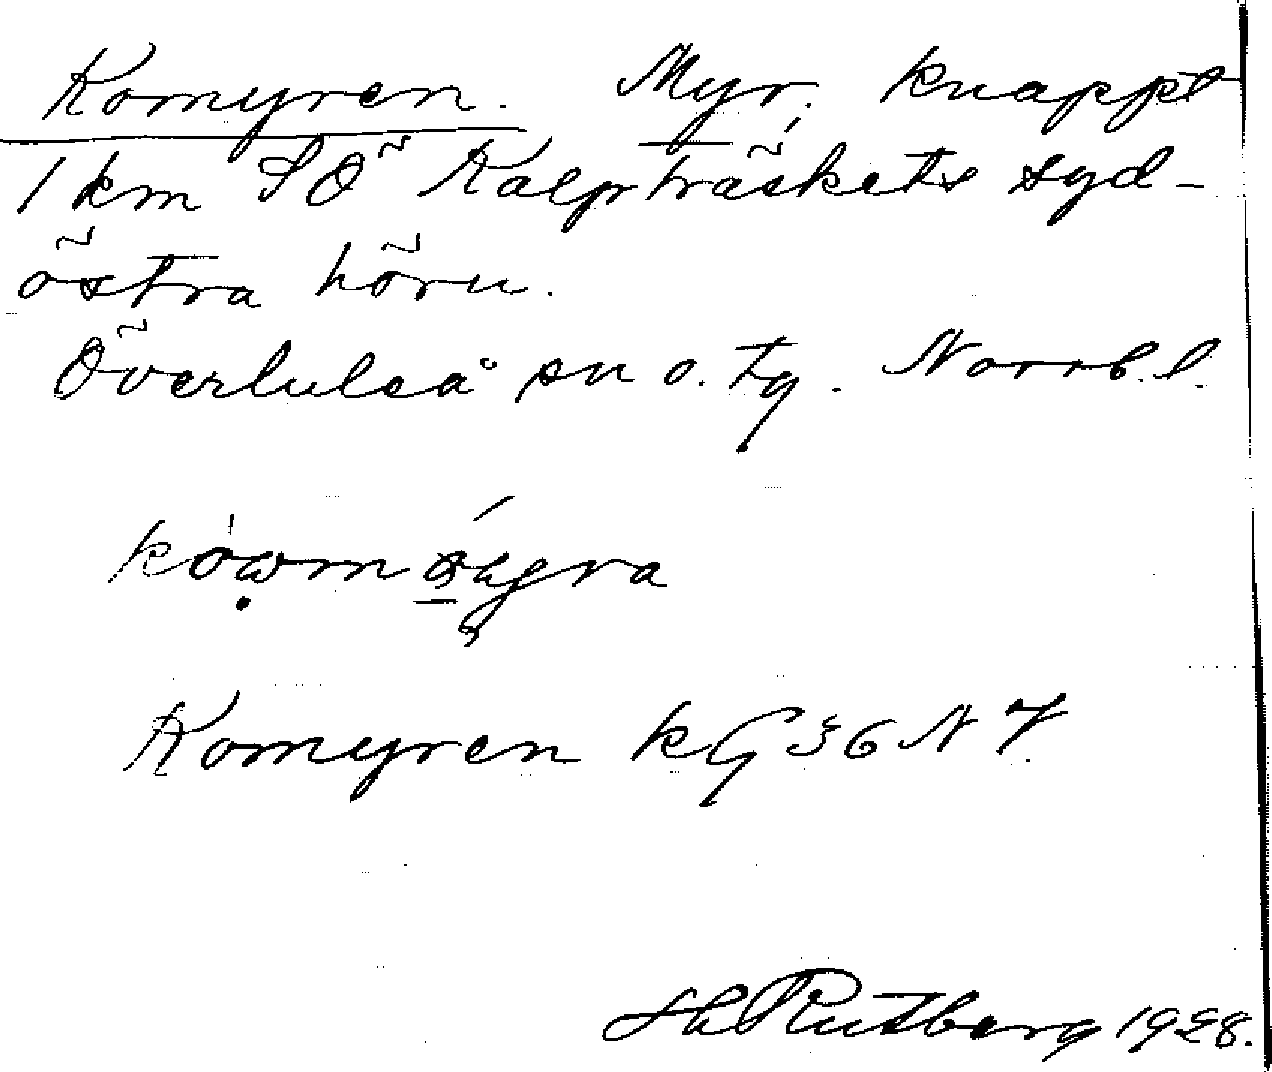 Komyren. Myr, knappt
1 km SÖ Kalpträskets syd-
östra hörn.
Överluleå sn o. tg. Norrb. l.
Komyren kG 36 N 7.
Hh Rutberg 1928.